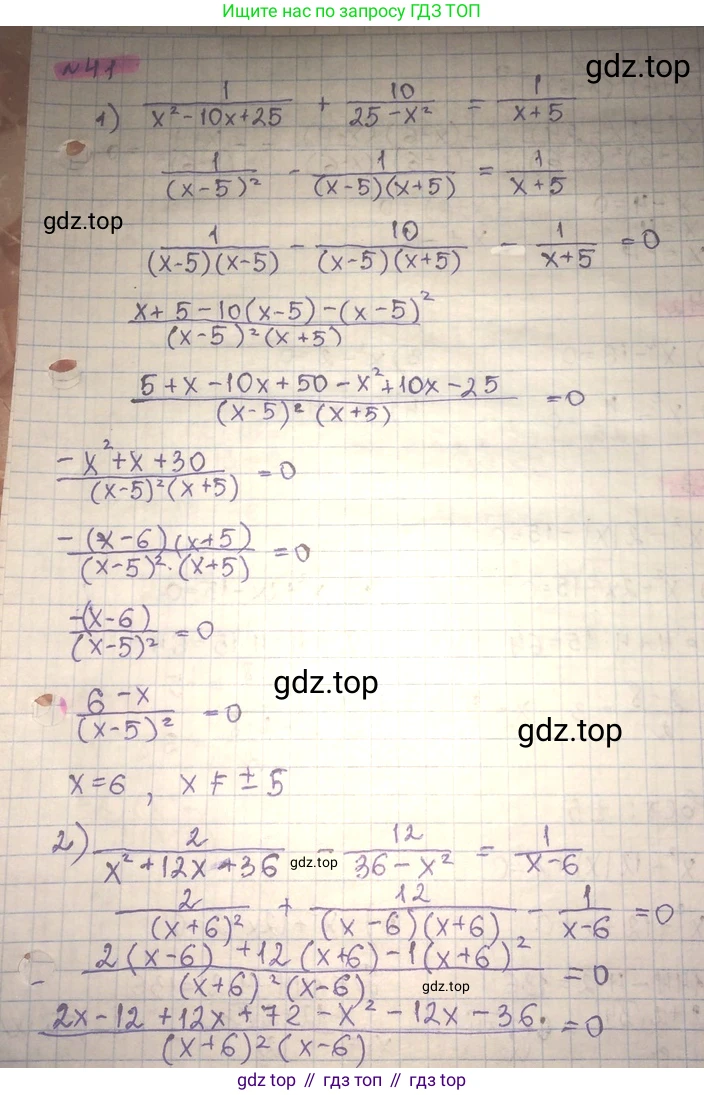 Ищите нас по запросу ГДЗ ТОП
№41
gdz.top
1) 1/(x² - 10x + 25) + 10/(25 - x²) = 1/(x + 5)
1/(x - 5)² - 1/((x - 5)(x + 5)) = 1/(x + 5)
gdz.top
1/((x - 5)(x - 5)) - 10/((x - 5)(x + 5)) - 1/(x + 5) = 0
(x + 5 - 10(x - 5) - (x - 5)²)/((x - 5)²(x + 5))
(5 + x - 10x + 50 - x² + 10x - 25)/((x - 5)²(x + 5)) = 0
(-x² + x + 30)/((x - 5)²(x + 5)) = 0
(-(x - 6)(x + 5))/((x - 5)²·(x + 5)) = 0
(-(x - 6))/(x - 5)² = 0
gdz.top
(6 - x)/(x - 5)² = 0
gdz.top
x = 6, x ≠ ± 5
2) 2/(x² + 12x + 36) - 12/(36 - x²) = 1/(x - 6)
gdz.top
2/(x + 6)² + 12/((x - 6)(x + 6)) - 1/(x - 6) = 0
(2(x - 6) + 12(x + 6) - 1(x + 6)²)/((x + 6)²(x - 6)) = 0
gdz.top
(2x - 12 + 12x + 72 - x² - 12x - 36)/((x + 6)²(x - 6)) = 0
gdz топ // гдз топ // гдз top